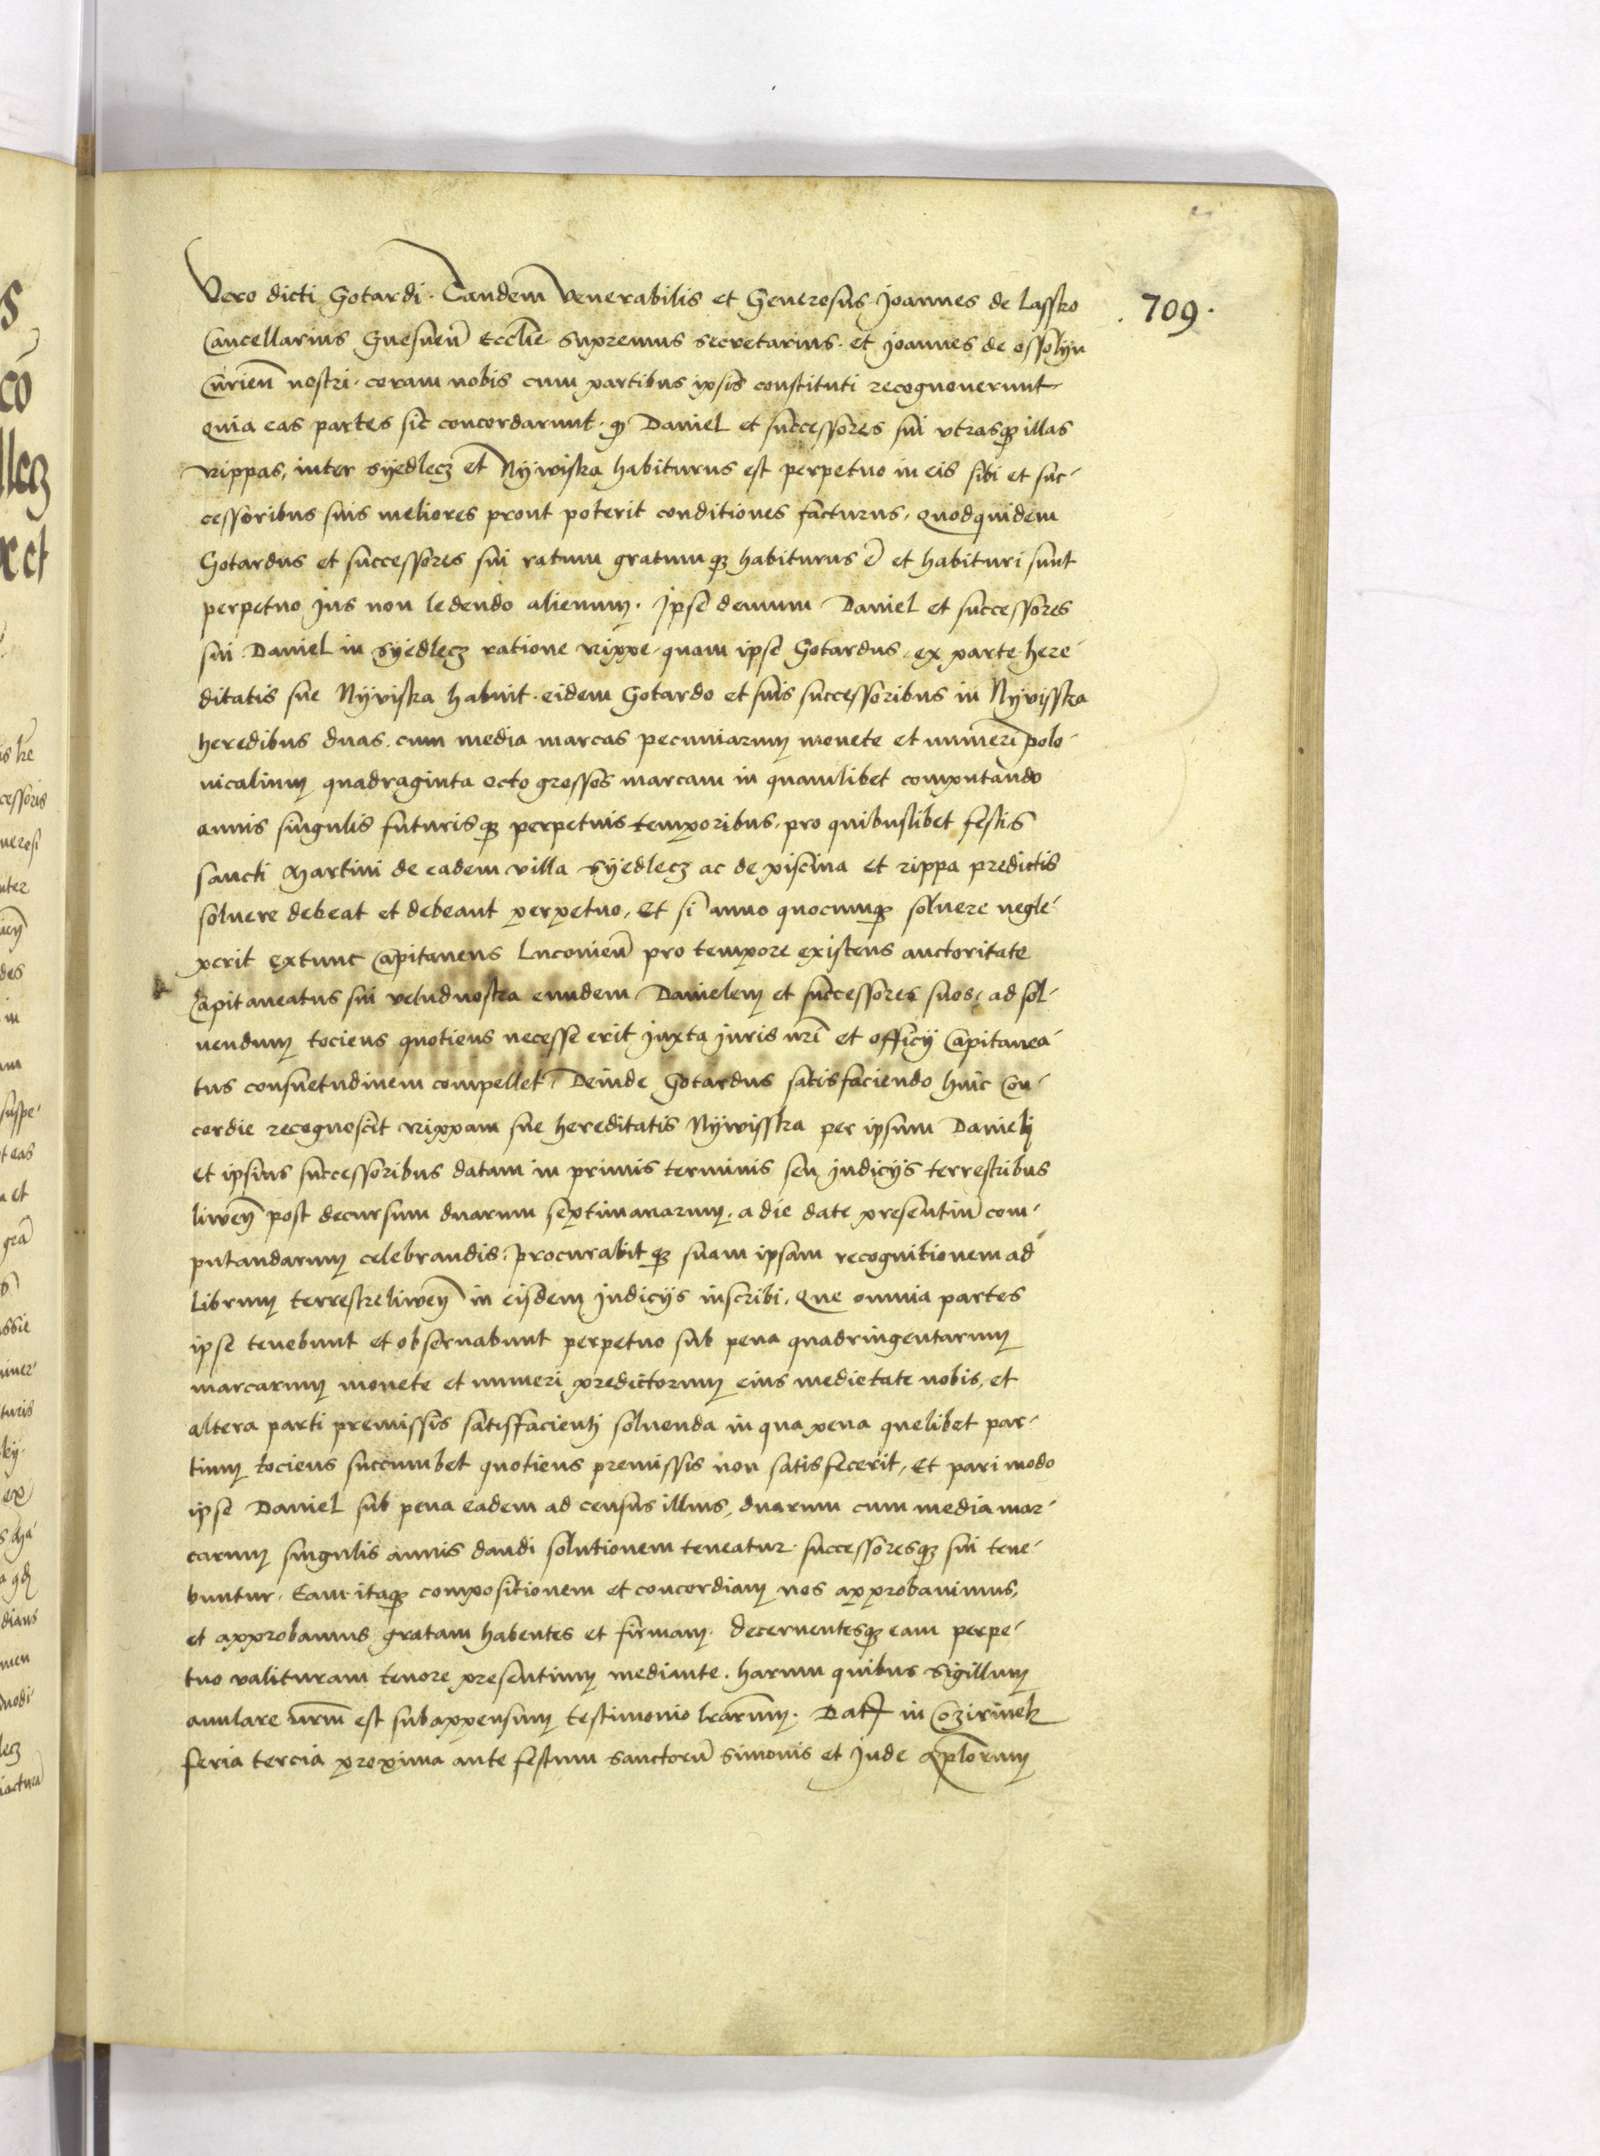 Vero dicti Gotardi. Tandem venerabilis et Generosus Joannes de Lassko
Cancellarius Gnesnen̄ Ecclīe supremus secretarius. et Joannes de ossolyn
Curien̄ nostri. coram nobis cum partibus ipsis constituti recognoverunt
quia eas partes sic concordarunt. q̃ Daniel et successores sui vtrasqꝫ illas
rippas, inter Syedlecz et Nywiska habiturus est perpetuo in eis sibi et suc-
cessoribus suis meliores prout poterit conditiones facturus, quodquidem
Gotardus et successores sui ratum gratumqꝫ habiturus ē et habituri sunt
perpetuo jus non ledendo alienum. Ipse demum Daniel et successores
sui Daniel in Syedlecz ratione rippe quam ipse Gotardus ex parte here-
ditatis sue Nyviska habuit. eidem Gotardo et suis successoribus in Nyvisska
heredibus duas cum media marcas pecuniarum monete et numeri polo-
nicalium quadraginta octo grossos marcam in quamlibet computando
annis singulis futurisqꝫ perpetuis temporibus. pro quibuslibet festis
sancti Martini de eadem villa Syedlecz ac de piscina et rippa predictis
soluere debeat et debeant perpetuo, Et si anno quocumqꝫ soluere negle-
xerit extunc Capitaneus Luconien̄ pro tempore existens auctoritate
Capitaneatus sui velud nostra eundem Danielem et successores suos, ad sol-
uendum tociens quotiens necesse erit juxta juris nr̄i et officij Capitanea-
tus consuetudinem compellet. Deinde Gotardus satisfaciendo huic Con-
cordie recognoscit rippam sue hereditatis Nywisska per ipsum Danieli
et ipsius successoribus datam in primis terminis seu judicijs terrestribus
liwen̄ post decursum duarum septimanarum. a die date presentiū com-
putandarum celebrandis. procurabitqꝫ suam ipsam recognitionem ad
librum terrestre liwen̄ in eisdem judicijs inscribi, Que omnia partes
ipse tenebunt et obseruabunt perpetuo sub pena quadringentarum
marcarum monete et numeri predictorum eius medietate nobis, et
altera parti premissis satisfacienti soluenda in qua pena quelibet par-
tium tociens succumbet quotiens premissis non satisfecerit, Et pari modo
ipse Daniel sub pena eadem ad census illius, duarum cum media mar-
carum singulis annis dandi solutionem teneatur successoresqꝫ sui tene-
buntur. Eam itaqꝫ compositionem et concordiam nos approbauimus,
et approbamus gratam habentes et firmam. decernentesqꝫ eam perpe-
tuo valituram tenore presentium mediante. harum quibus sigillum
anulare nr̄m est subappensum testimonio lrarum. Datꝭ in Cozirinek
feria tercia proxima ante festum sanctorū Simonis et Jude aplorum
709.